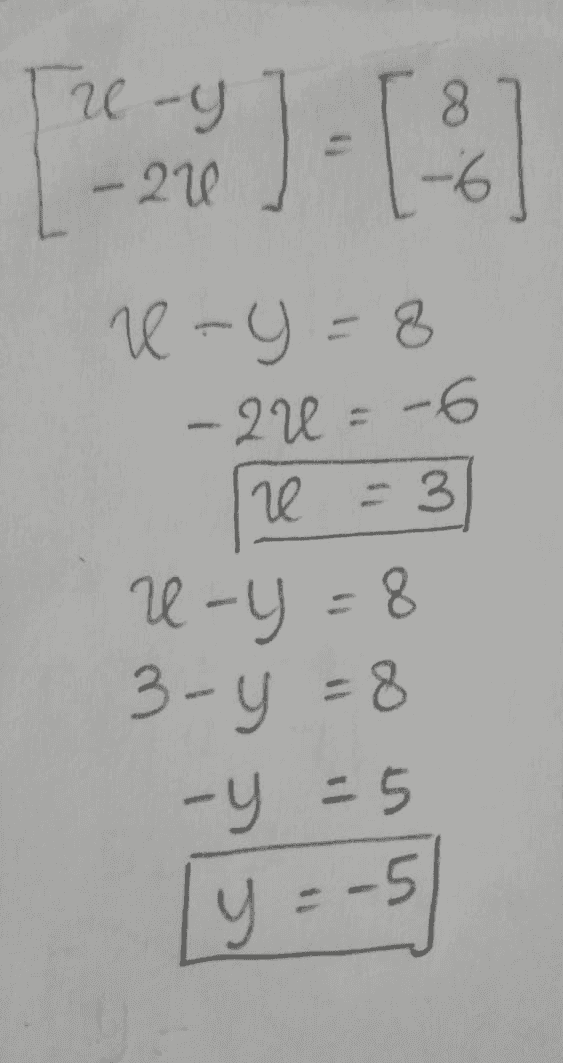 [x - y
- 2x] = [8
-6]
x - y = 8
- 2x = -6
x = 3
x - y = 8
3 - y = 8
- y = 5
y = -5